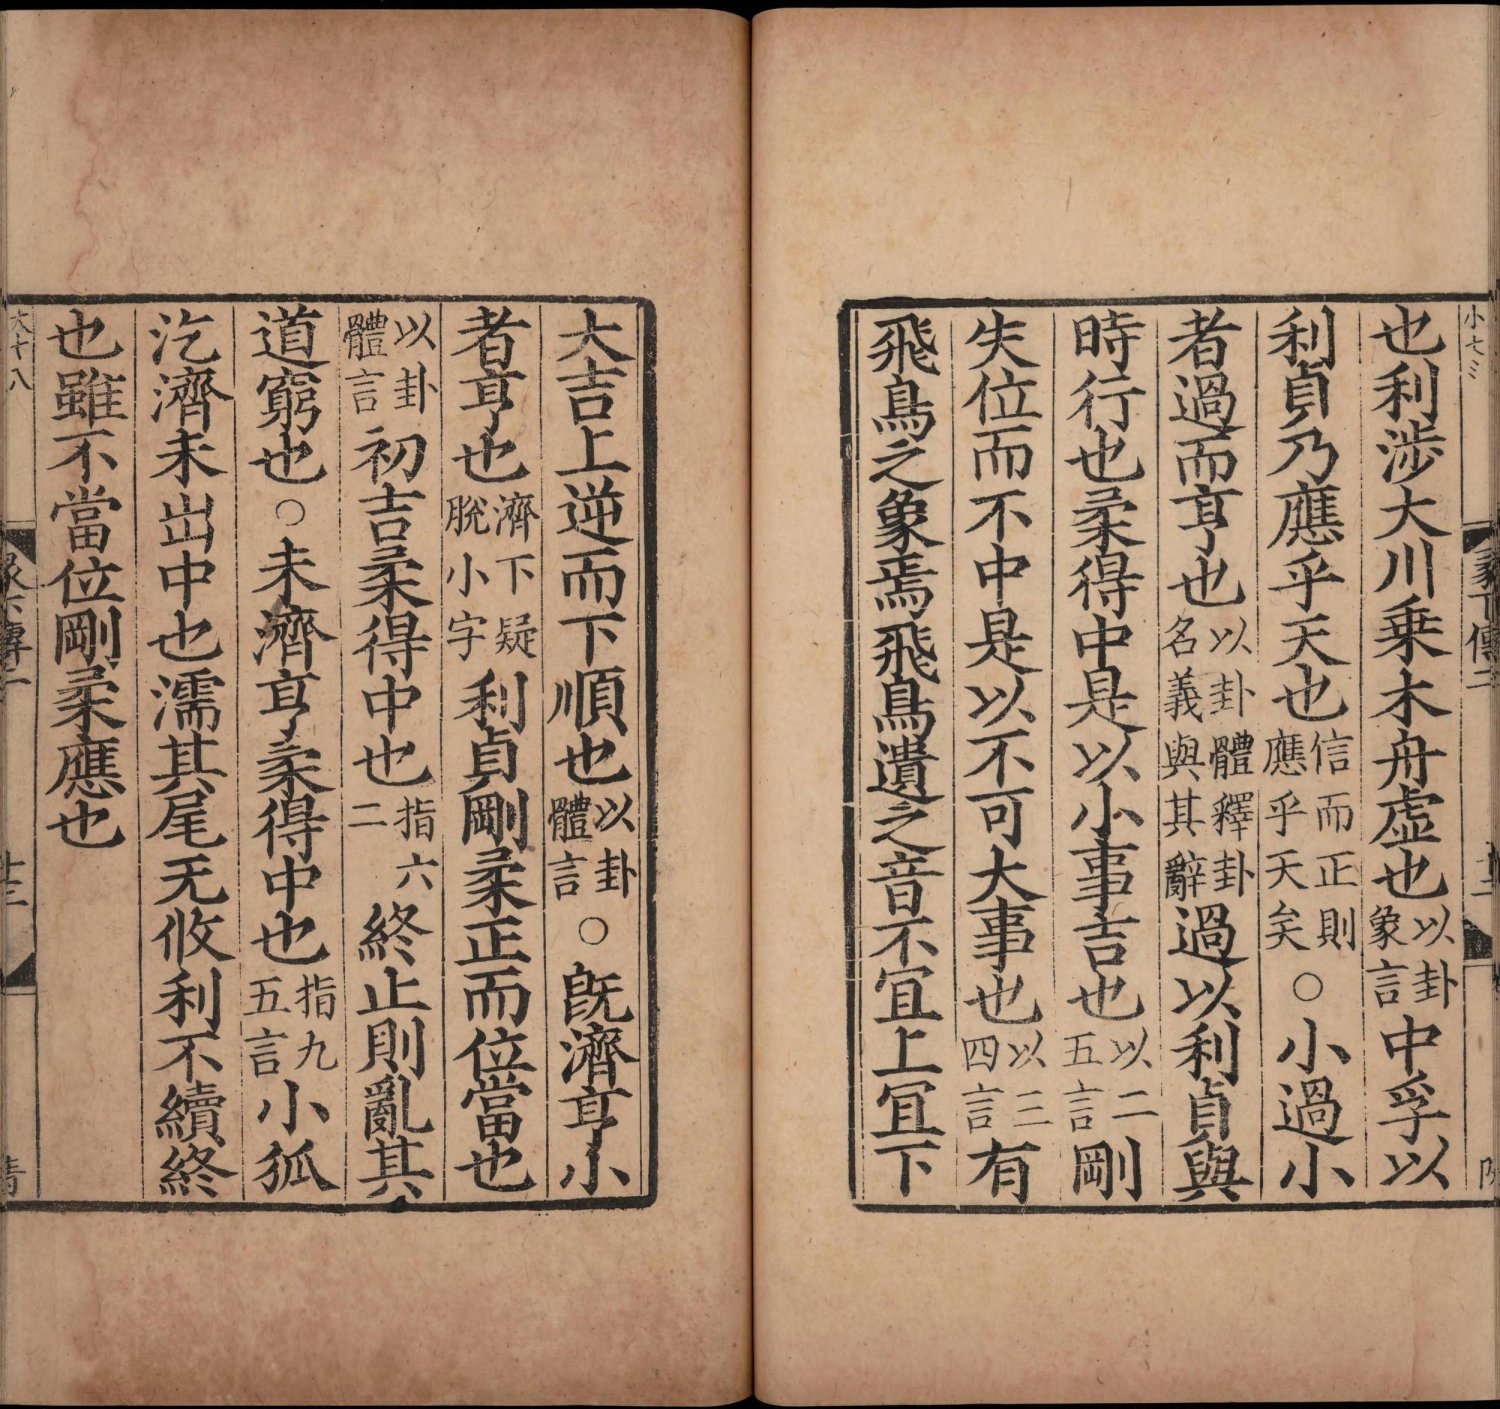 小七三
彖下傳二
十二
也利涉大川乗木舟虛也以卦象言中孚以
利貞乃應乎天也信而正則應乎天矣○小過小
者過而亨也以卦體釋卦名義與其辭過以利貞與
時行也柔得中是以小事吉也以二五言剛
失位而不中是以不可大事也以三四言有
飛鳥之象焉飛鳥遺之音不宜上宜下
大吉上逆而下順也以卦體言○旣濟亨小
者亨也濟下疑脫小字利貞剛柔正而位當也
以卦體言初吉柔得中也指六二終止則亂其
道窮也○未濟亨柔得中也指九五言小狐
汔濟未出中也濡其尾无攸利不續終
也雖不當位剛柔應也
大十八
十三